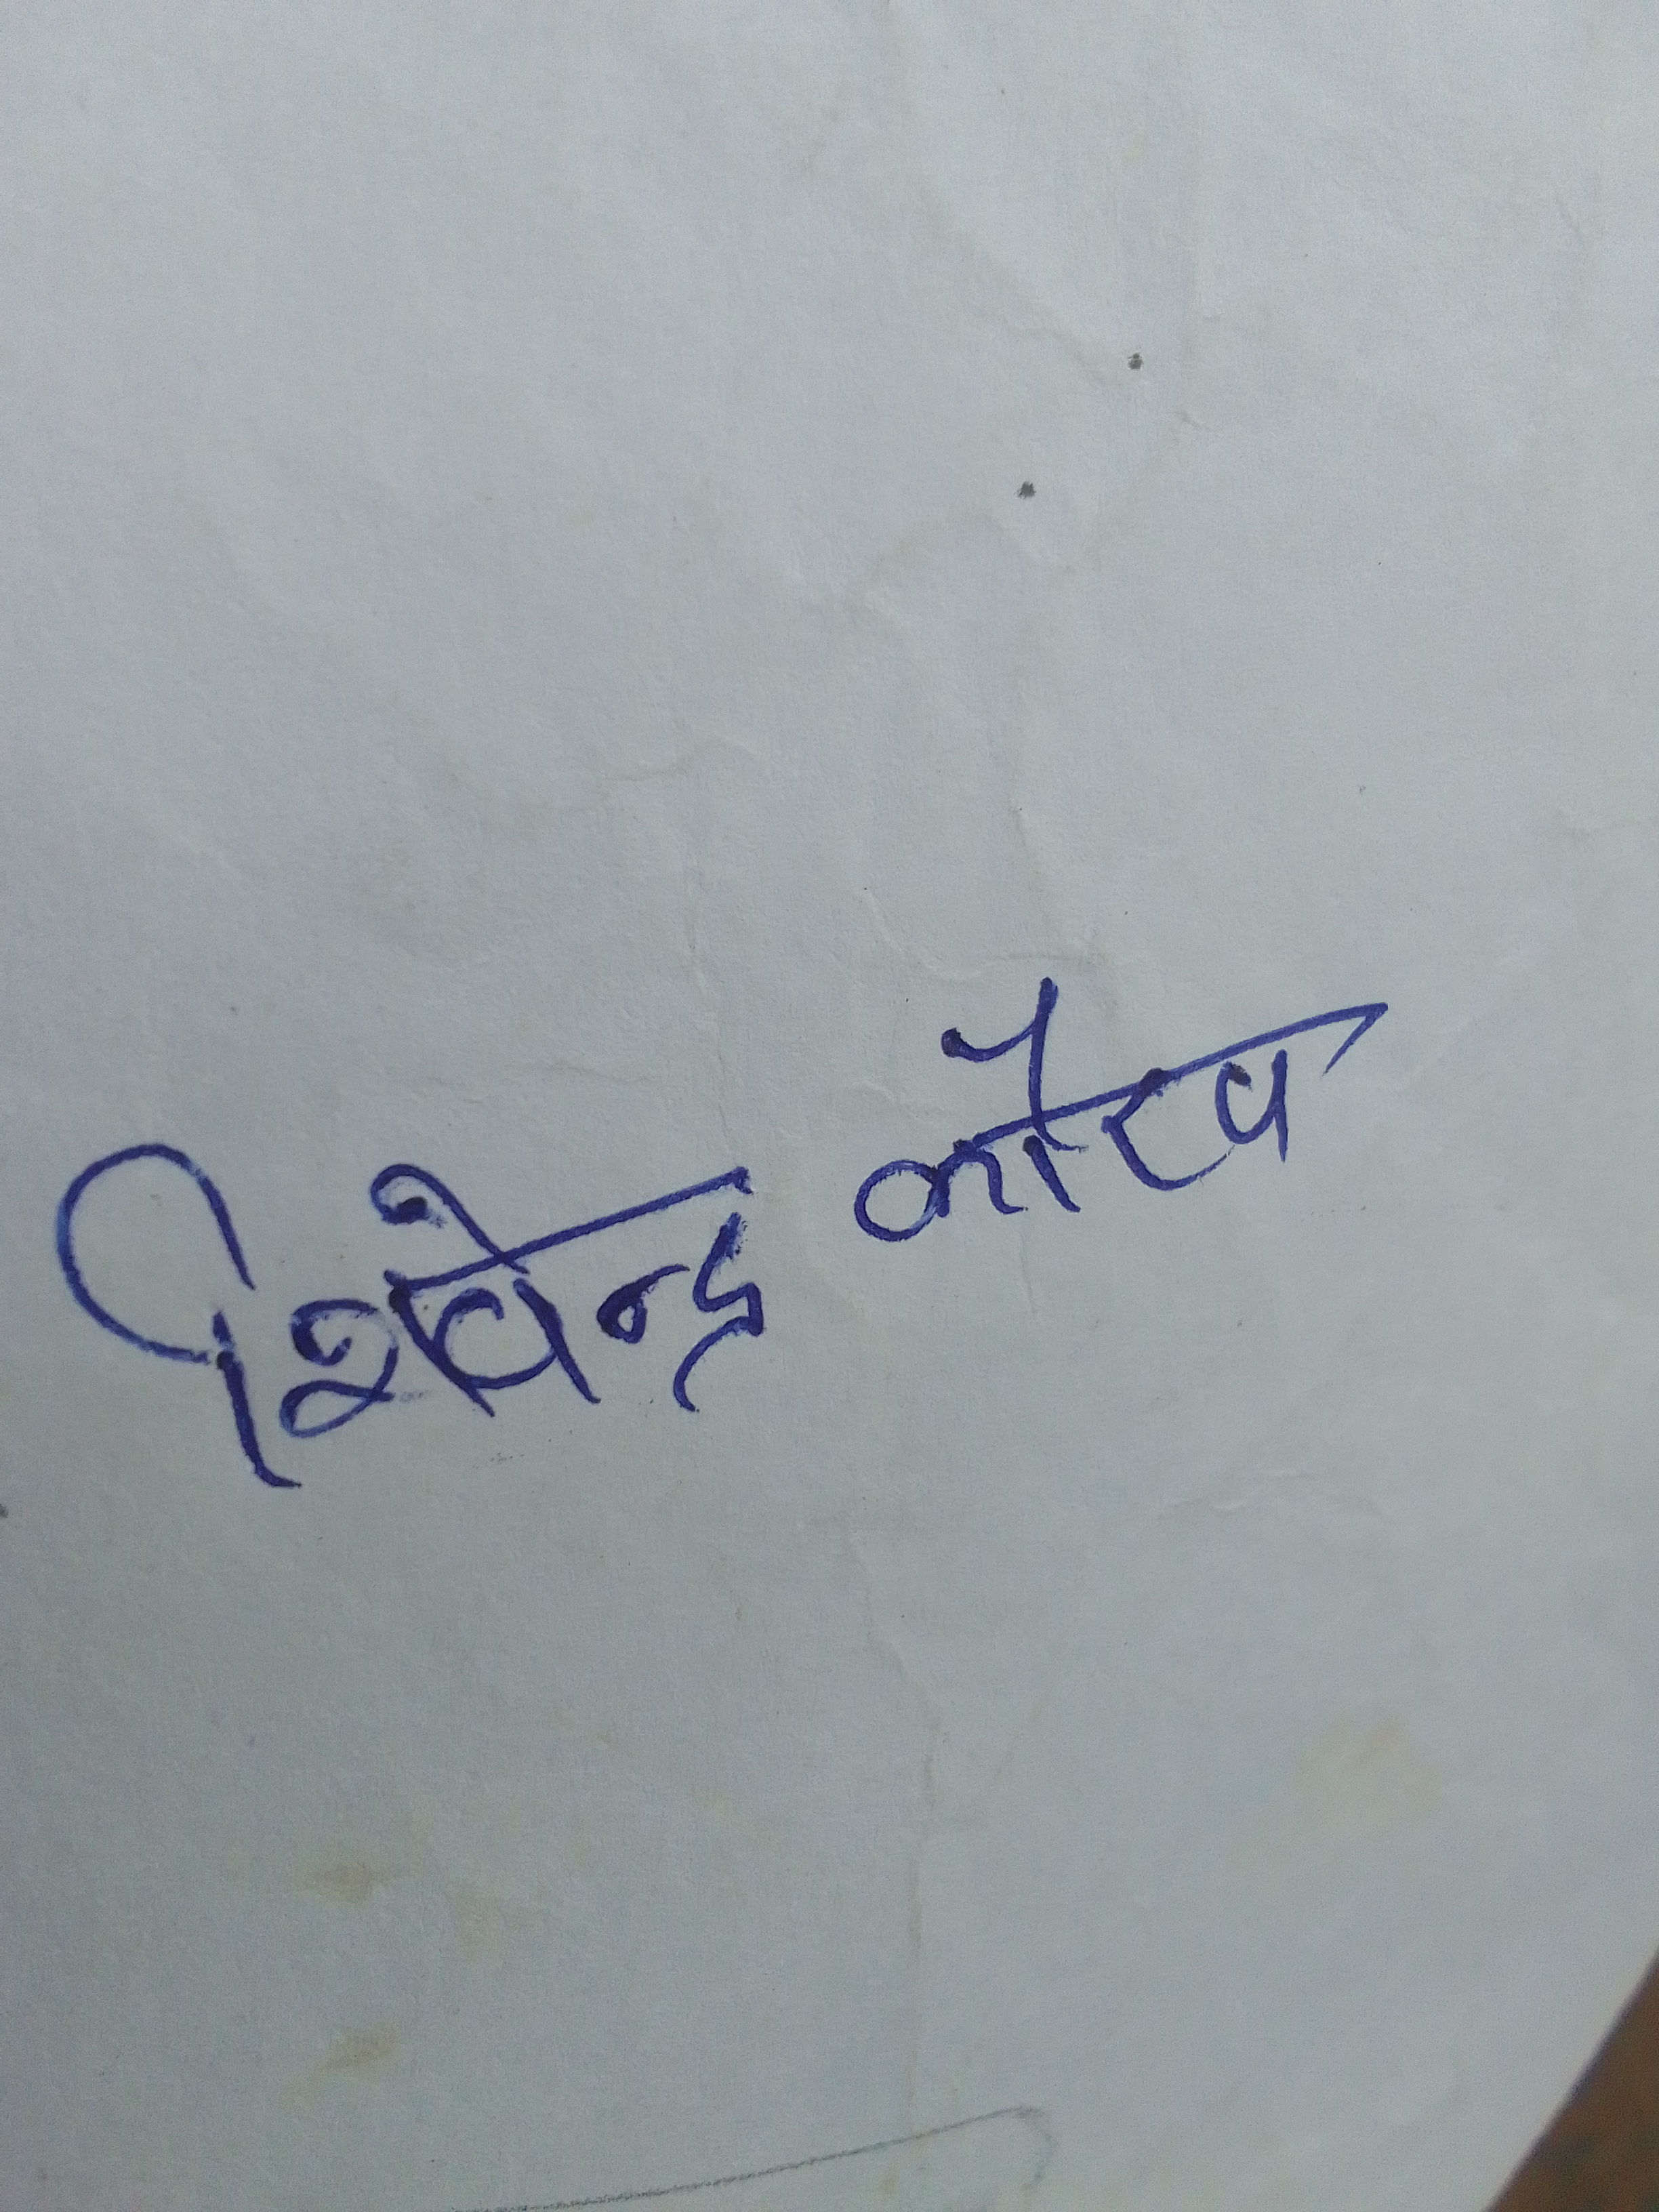 शिवेन्द्र कौरव